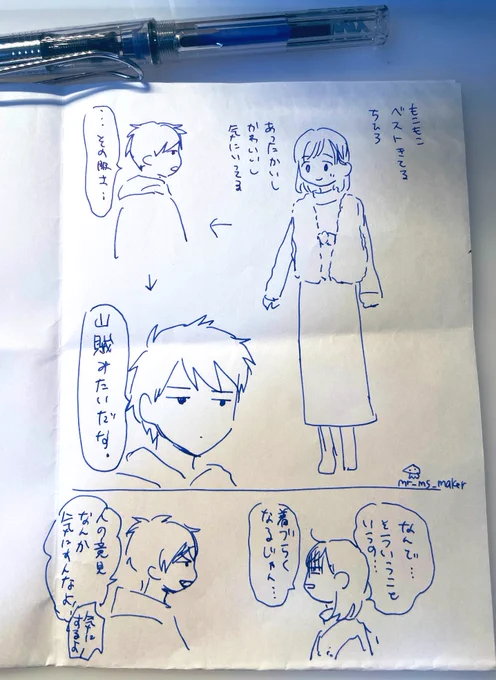 もこもこ
ベストきてる
ちひろ
あったかいし
かわいいし
気にいってる
…その服さ…
山賊みたいだな。
mr_ms_maker
なんで…
そういうこと
いうの…
着づらく
なるじゃん…
人の意見
なんか
気にすんなよ
気に
するよ